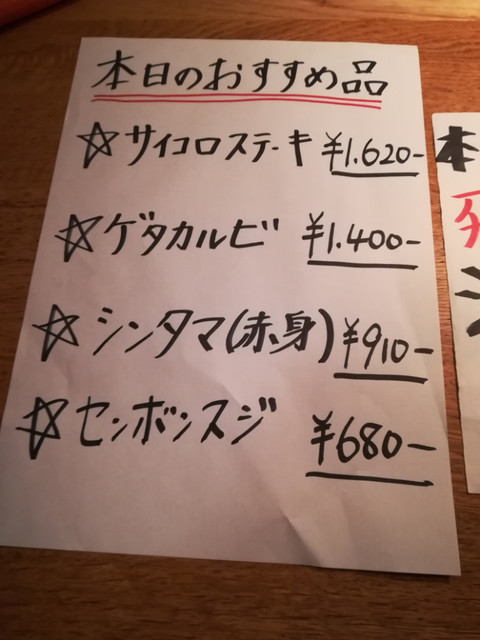 本日のおすすめ品
☆サイコロステーキ ¥1.620-
☆ゲタカルビ ¥1.400-
☆シンタマ(赤身) ¥910-
☆センボンスジ ¥680-
本